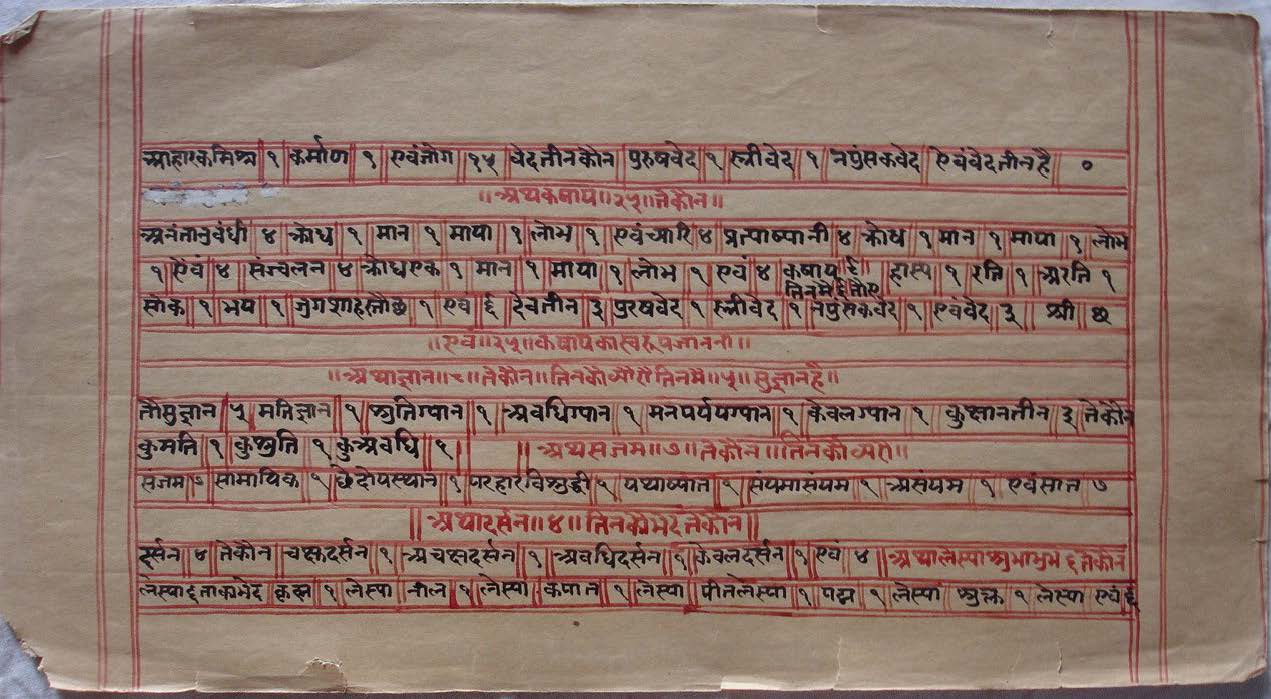 आहारकमिश्र ॥१॥ कर्माण ॥१॥ एवंजोग ॥१५॥ वेदतीनकौन ॥ पुरुषवेद ॥१॥ स्त्रीवेद ॥१॥ नपुंसकवेद ॥ ऐवंवेदतीनहै ॥ ०
॥अथकषाय॥२५॥तेकौन॥
अनंतानुबंधी ॥४॥ क्रोध ॥१॥ मान ॥१॥ माया ॥१॥ लोभ ॥१॥ एवंच्यारि ४ ॥ प्रत्याष्यानी ॥४॥ क्रोध ॥१॥ मान ॥१॥ माया ॥१॥ लोभ
१ ॥ ऐवं ॥४॥ संज्वलन ॥४॥ क्रोधएक ॥१॥ मान ॥१॥ माया ॥१॥ लोभ ॥१॥ एवं ॥४॥ कषाय ६॥ हास्य ॥१॥ रति ॥१॥ अरति १
तिनमे
सोक ॥१॥ भय ॥१॥ १ ॥ एवं ॥६॥ वेवतीन ॥३॥ पुरषवेद ॥१॥ स्त्रीवेद ॥१॥ नपुंसकवेद ॥१॥ एवंवेद ॥३॥ श्री ॥
॥एवं॥२५॥कषायकास्वरूपजाननो॥
॥अथाज्ञान॥८॥तेकौन॥तिनकौव्यौरौतिनमै॥५॥सुज्ञानहै॥
तौसुज्ञान ॥५॥ मतिज्ञान ॥१॥ श्रुतिग्यान ॥१॥ अवधिग्यान ॥१॥ मनपर्ययग्यान ॥१॥ केवलग्यान ॥१॥ कुज्ञानतीन ॥३॥ तेकौन
कुमति ॥१॥ कुश्रुति ॥१॥ कुअवधि ॥१॥ ॥अथसंजम॥७॥तेकौन॥तिनकौव्यरौ॥
सजम ॥७॥ सामायिक ॥१॥ छेदोपस्थान ॥१॥ परहारविशुद्धी ॥१॥ यथाष्यात ॥१॥ संयमासंयम ॥१॥ असंयम ॥१॥ एवंसात ७
॥अथादर्सन॥४॥तिनकौभेदतेकौन॥
दर्सन ॥४॥ तेकौन ॥ चक्षदर्सन ॥१॥ अचक्षदर्सन ॥१॥ अवधिदर्सन ॥१॥ केवलदर्सन ॥१॥ एवं ॥४॥ अथालेस्याशुभाशुभ ६ तेकौन
लेस्या ६ ताकाभेद ॥ कृस्न ॥१॥ लेस्या ॥ नील ॥१॥ लेस्या ॥ कपोत ॥१॥ लेस्या ॥ पीतलेस्या ॥१॥ पद्म ॥१॥ लेस्या ॥ शुक्ल ॥१॥ लेस्या ॥ एवं ६